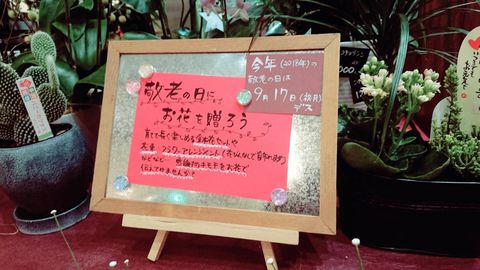 今年(2018年)の
敬老の日は
9月17日(祝月)
デス
敬老の日に
お花を贈ろう
育てて長く楽しめる鉢花セットや
花束 フラワーアレンジメント
などなど 感謝のキモチをお花で
伝えてみませんか?